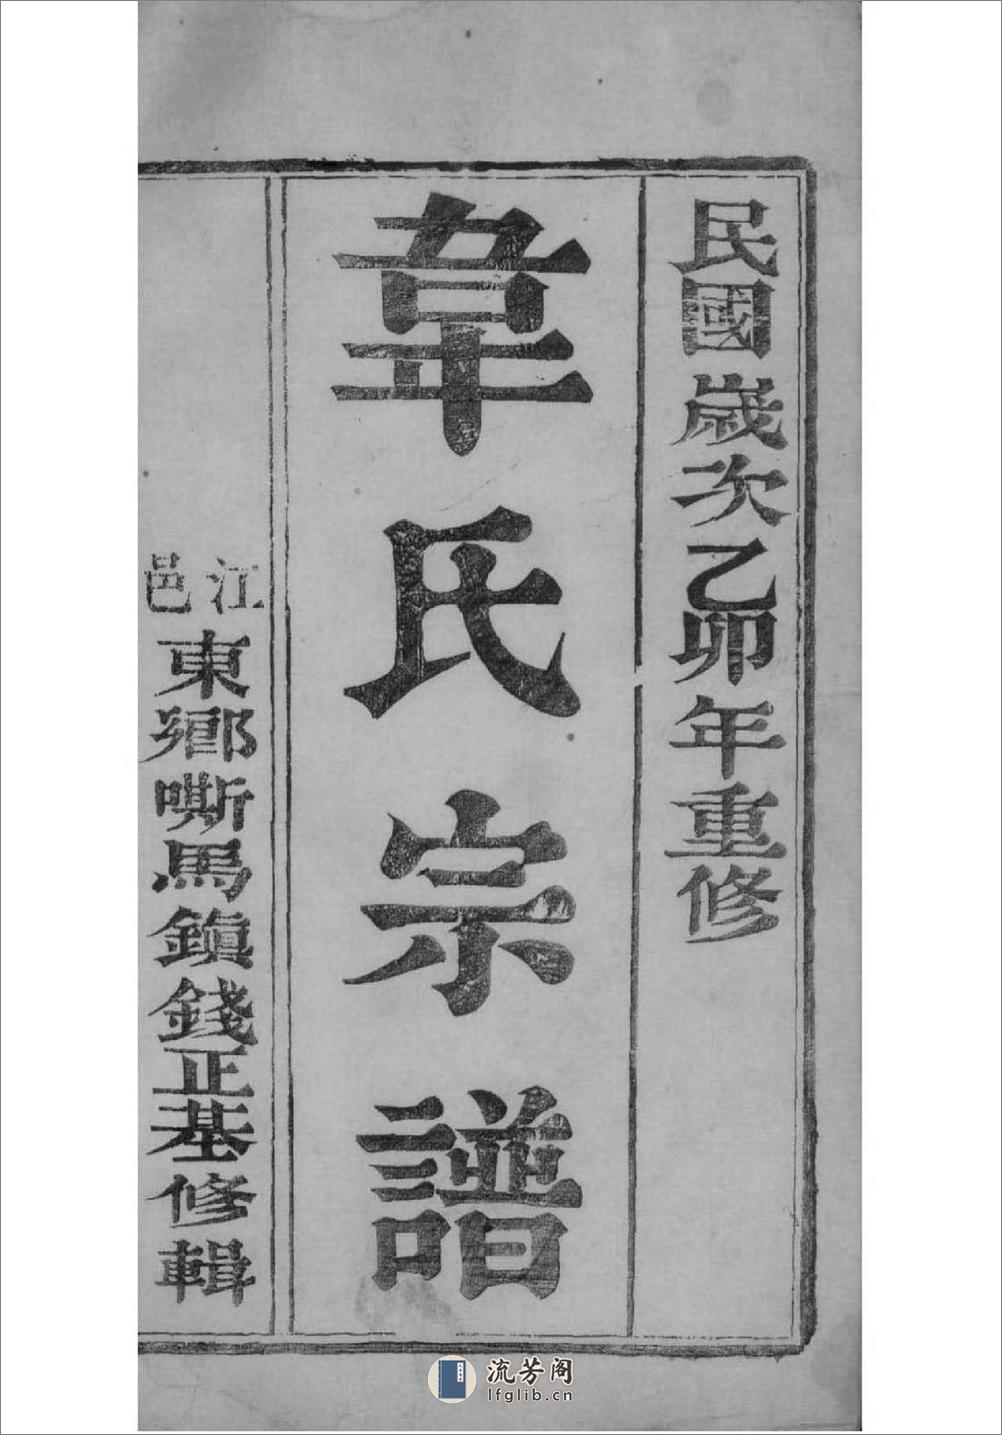 民國歲次乙卯年重修
韋氏宗譜
江邑東鄉嘶馬鎭錢正基修輯
流芳阁
lfglib.cn